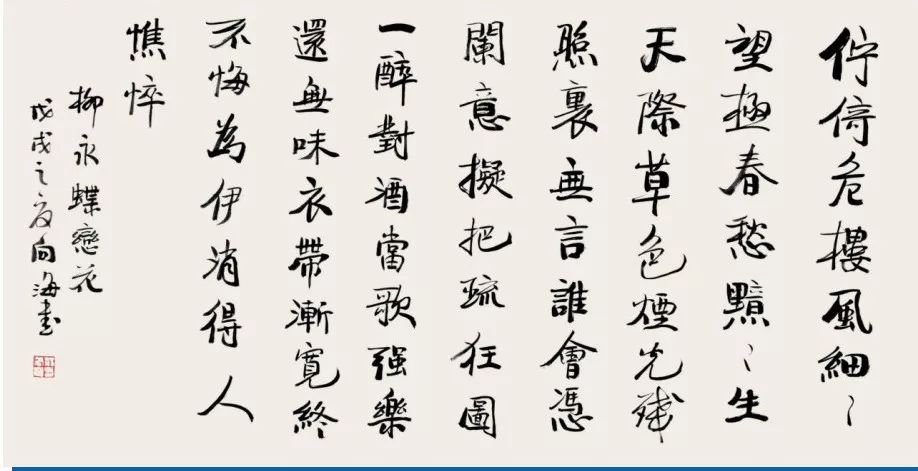 佇倚危樓風細〻
望極春愁黯〻生
天際草色煙光殘
照裏無言誰會憑
闌意擬把疏狂圖
一醉對酒當歌强樂
還無味衣帶漸寬終
不悔為伊消得人
憔悴
柳永蝶戀花
戊戌之夏向海書